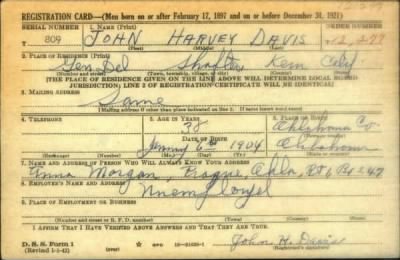 REGISTRATION CARD—(Men born on or after February 17, 1897 and on or before December 31, 1921)
SERIAL NUMBER
1. NAME (Print)
ORDER NUMBER
809
JOHN HARVEY DAVIS
12,277
(First) (Middle) (Last)
2. PLACE OF RESIDENCE (Print)
Gen. Del Shafter Kern Calif
(Number and street) (Town, township, village, or city) (County) (State)
[THE PLACE OF RESIDENCE GIVEN ON THE LINE ABOVE WILL DETERMINE LOCAL BOARD
JURISDICTION; LINE 2 OF REGISTRATION CERTIFICATE WILL BE IDENTICAL]
3. MAILING ADDRESS
Same
[Mailing address if other than place indicated on line 2. If same insert word same]
4. TELEPHONE
5. AGE IN YEARS
6. PLACE OF BIRTH
38
Oklahoma Co
DATE OF BIRTH
(Town or county)
6th 1904
Oklahoma
(Exchange) (Number)
(Mo.) (Day) (Yr.)
(State or country)
7. NAME AND ADDRESS OF PERSON WHO WILL ALWAYS KNOW YOUR ADDRESS
Anna Morgan, Prague, Okla, Rt 6, Bx 47
8. EMPLOYER'S NAME AND ADDRESS
Unemployed
9. PLACE OF EMPLOYMENT OR BUSINESS
(Number and street or R. F. D. number) (Town) (County) (State)
I AFFIRM THAT I HAVE VERIFIED ABOVE ANSWERS AND THAT THEY ARE TRUE.
D. S. S. Form 1
(Revised 1-1-42)
GPO
John H. Davis
(Registrant's signature)